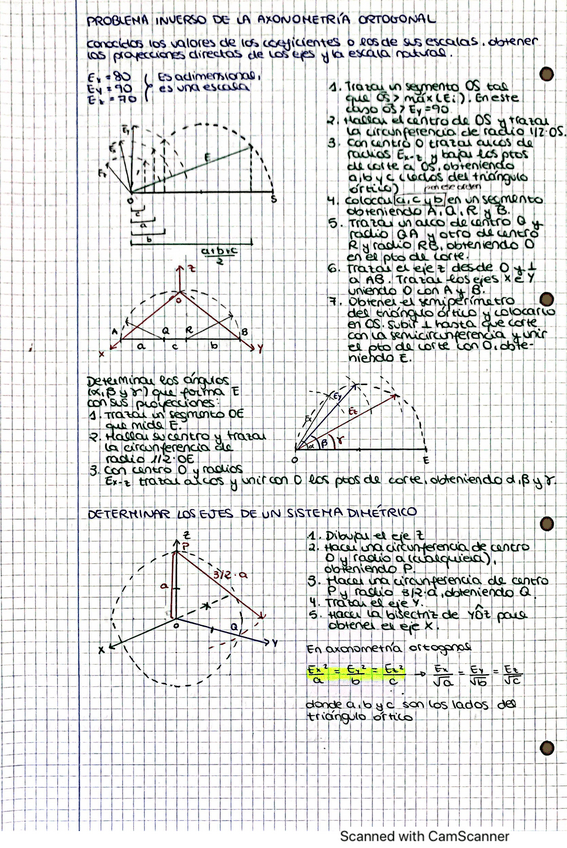 PROBLEMA INVERSO DE LA AXONOMETRÍA ORTOGONAL
Conocidos los valores de los coeficientes o los de sus escalas, obtener
las proyecciones directas de los ejes y la escala natural.
Ex = 80
Ey = 90
Ez = 70
E es adimensional,
e es una escala
1. Trazar un segmento OS tal
que OS > máx (Ei). En este
caso OS > Ey = 90
2. Hallar el centro de OS y trazar
la circunferencia de radio 1/2·OS.
3. Con centro O trazar arcos de
radios Ex-z y bajar los ptos
de corte a OS, obteniendo
a, b y c (lados del triángulo
órtico)
en ese orden
4. Colocar a, c y b en un segmento
obteniendo A, Q, R y B.
5. Trazar un arco de centro Q y
radio QA y otro de centro
R y radio RB, obteniendo O
en el pto de corte.
6. Trazar el eje z desde O y ⊥
a AB. Trazar los ejes X e Y
uniendo O con A y B.
7. Obtener el semiperímetro
del triángulo órtico y colocarlo
en OS. Subir ⊥ hasta que corte
con la semicircunferencia y unir
el pto de corte con O, obte-
niendo E.
E
O
S
c
a
b
a+b+c
2
z
O
A
Q
R
B
a
c
b
X
Y
Determinar los ángulos
(α, β y γ) que forma E
con sus proyecciones:
1. Trazar un segmento OE
que mida E.
2. Hallar su centro y trazar
la circunferencia de
radio 1/2·OE
3. Con centro O y radios
Ex-z trazar arcos y unir con O los ptos de corte, obteniendo α, β y γ.
Ey
Ez
α
β
γ
O
E
DETERMINAR LOS EJES DE UN SISTEMA DIMÉTRICO
z
P
3/2·a
a
O
Q
X
Y
1. Dibujar el eje z
2. Hacer una circunferencia de centro
O y radio a (cualquiera),
obteniendo P.
3. Hacer una circunferencia de centro
P y radio 3/2·a, obteniendo Q.
4. Trazar el eje Y.
5. Hacer la bisectriz de YÔZ para
obtener el eje X.
En axonometría ortogonal
Ex²/a = Ey²/b = Ez²/c → Ex/√a = Ey/√b = Ez/√c
donde a, b y c son los lados del
triángulo órtico
Scanned with CamScanner